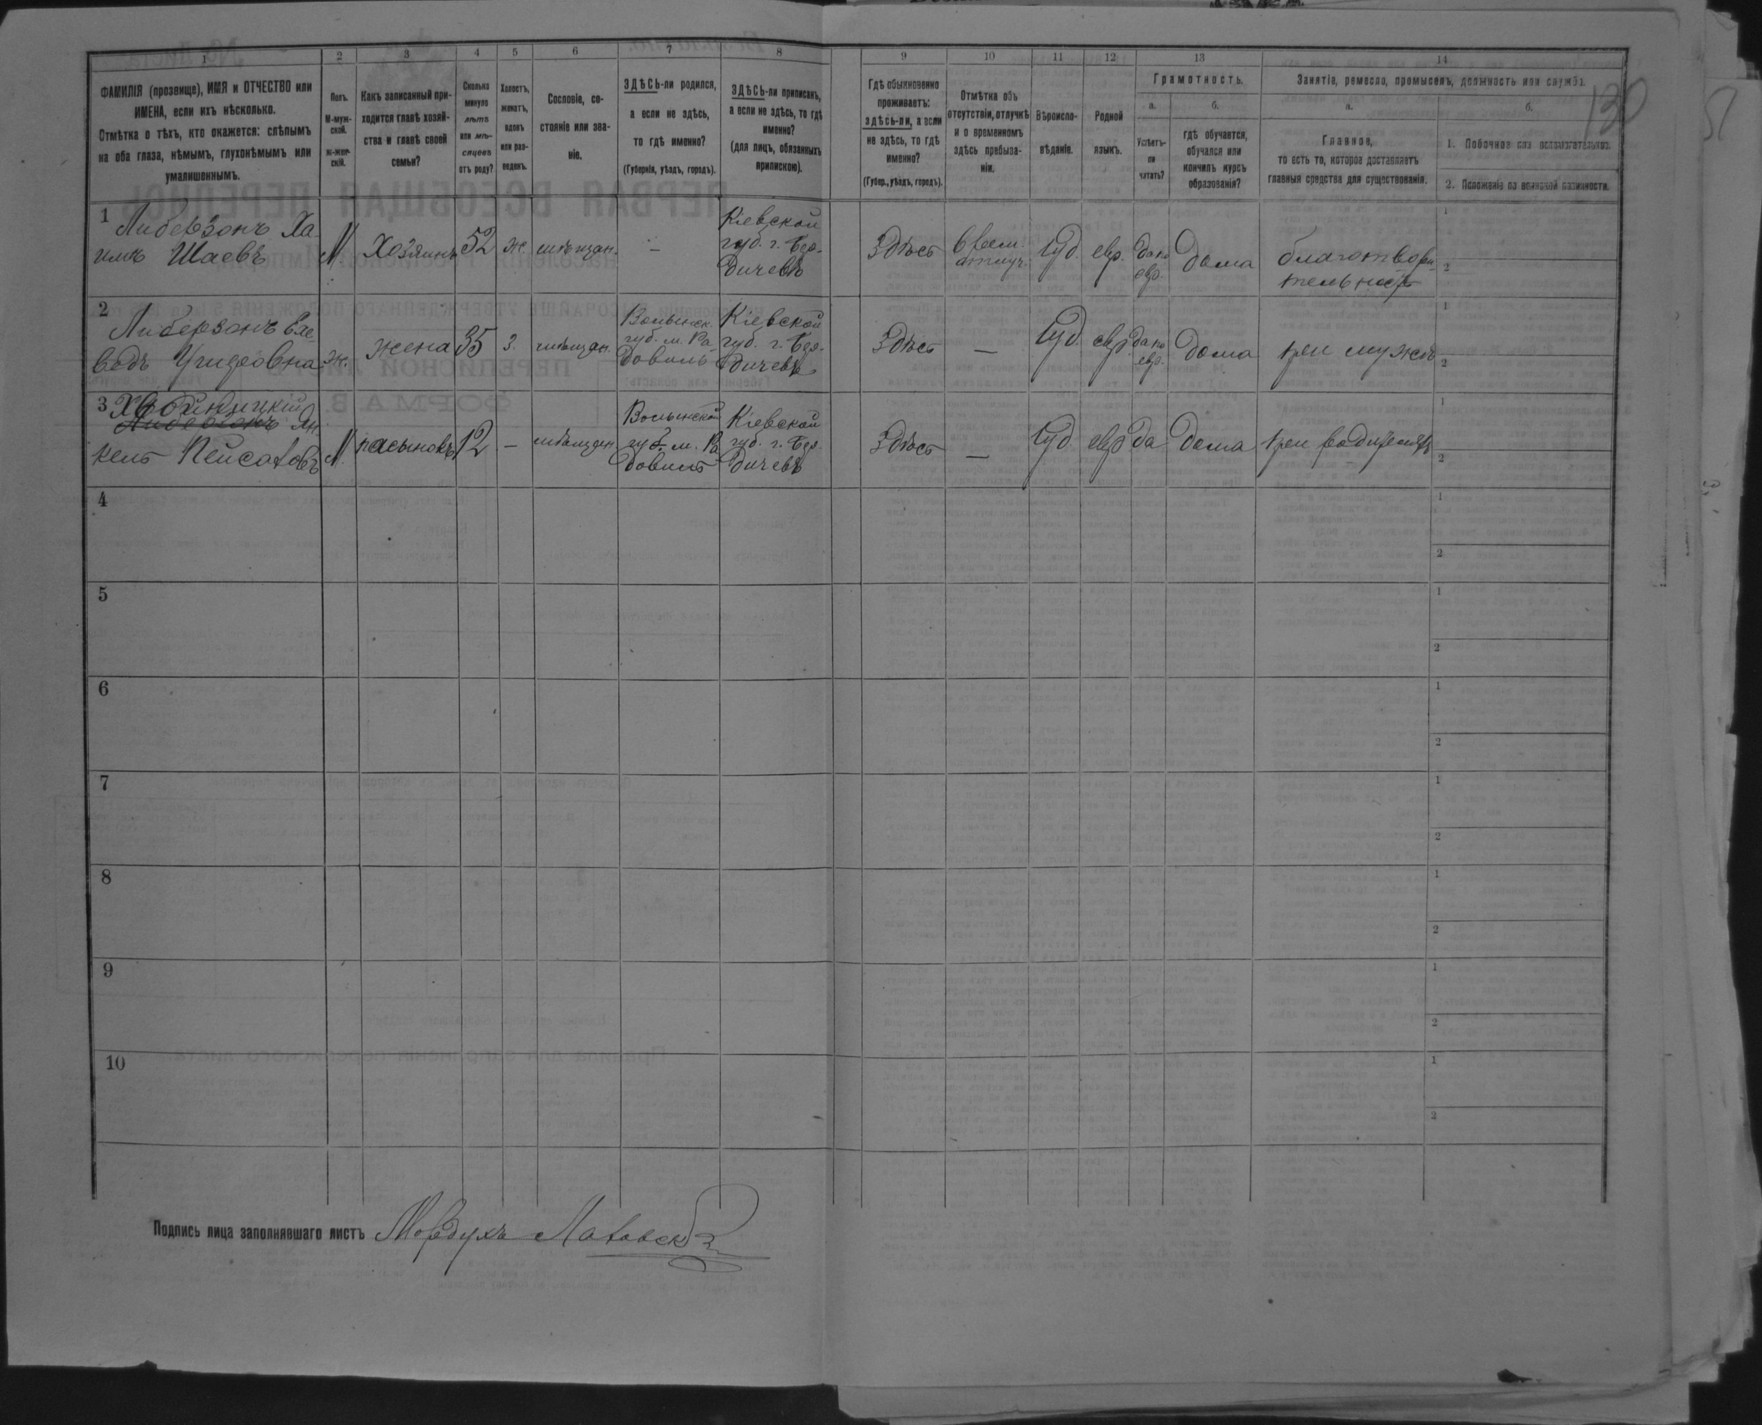 1
2
3
4
5
6
7
8
9
10
11
12
13
14
ФАМИЛІЯ (прозвище), ИМЯ и ОТЧЕСТВО или
ИМЕНА, если ихъ нѣсколько.
Отмѣтка о тѣхъ, кто окажется: слѣпымъ
на оба глаза, нѣмымъ, глухонѣмымъ или
умалишеннымъ.
Полъ.
М-муж-
ской.
Ж-жен-
скій.
Какъ записанный при-
ходится главѣ хозяй-
ства и главѣ своей
семьи?
Сколько
минуло
лѣтъ
или мѣ-
сяцевъ
отъ роду?
Холостъ,
женатъ,
вдовъ
или раз-
веденъ.
Сословіе, со-
стояніе или зва-
ніе.
ЗДѢСЬ-ли родился,
а если не здѣсь,
то гдѣ именно?
(Губернія, уѣздъ, городъ).
ЗДѢСЬ-ли приписанъ,
а если не здѣсь, то гдѣ
именно?
(для лицъ, обязанныхъ
припискою).
Гдѣ обыкновенно
проживаетъ:
здѣсь-ли, а если
не здѣсь, то гдѣ
именно?
(Губер., уѣздъ, городъ).
Отмѣтка объ
отсутствіи, отлучкѣ
и о временномъ
здѣсь пребыва-
ніи.
Вѣроиспо-
вѣданіе.
Родной
языкъ.
Грамотность.
а.
Умѣетъ-
ли
читать?
б.
гдѣ обучается,
обучался или
кончилъ курсъ
образованія?
Занятіе, ремесло, промыселъ, должность или служба.
а.
Главное,
то есть то, которое доставляетъ
главныя средства для существованія.
б.
1. Побочное или вспомогательное.
2. Положеніе по воинской повинности.
130
1
Либерзонъ Ха
имъ Шаевъ
М
Хозяинъ
52
ж
мѣщан.
—
Кіевской
губ. г. Бер-
дичевъ
Здѣсь
Іуд.
евр.
да по
евр.
Дома
благотвори
тельност
1
2
2
Либерзонъ
ж.
жена
35
з.
мѣщан.
Волынск.
губ. м. Ра-
домыль
Кіевской
губ. г. Бер-
дичевъ
Здѣсь
—
Іуд
евр.
да по
евр.
Дома
при мужѣ
1
2
3
Либерзонъ Ян
кель Пейсаховъ
М.
пасынокъ
12
—
мѣщан
Волынской
губ. м.
Кіевской
губ. г. Бер-
дичевъ
Здѣсь
—
Іуд.
евр
да
Дома
при родителяхъ
1
2
4
1
2
5
1
2
6
1
2
7
1
2
8
1
2
9
1
2
10
1
2
Подпись лица заполнявшаго листъ Мордухъ